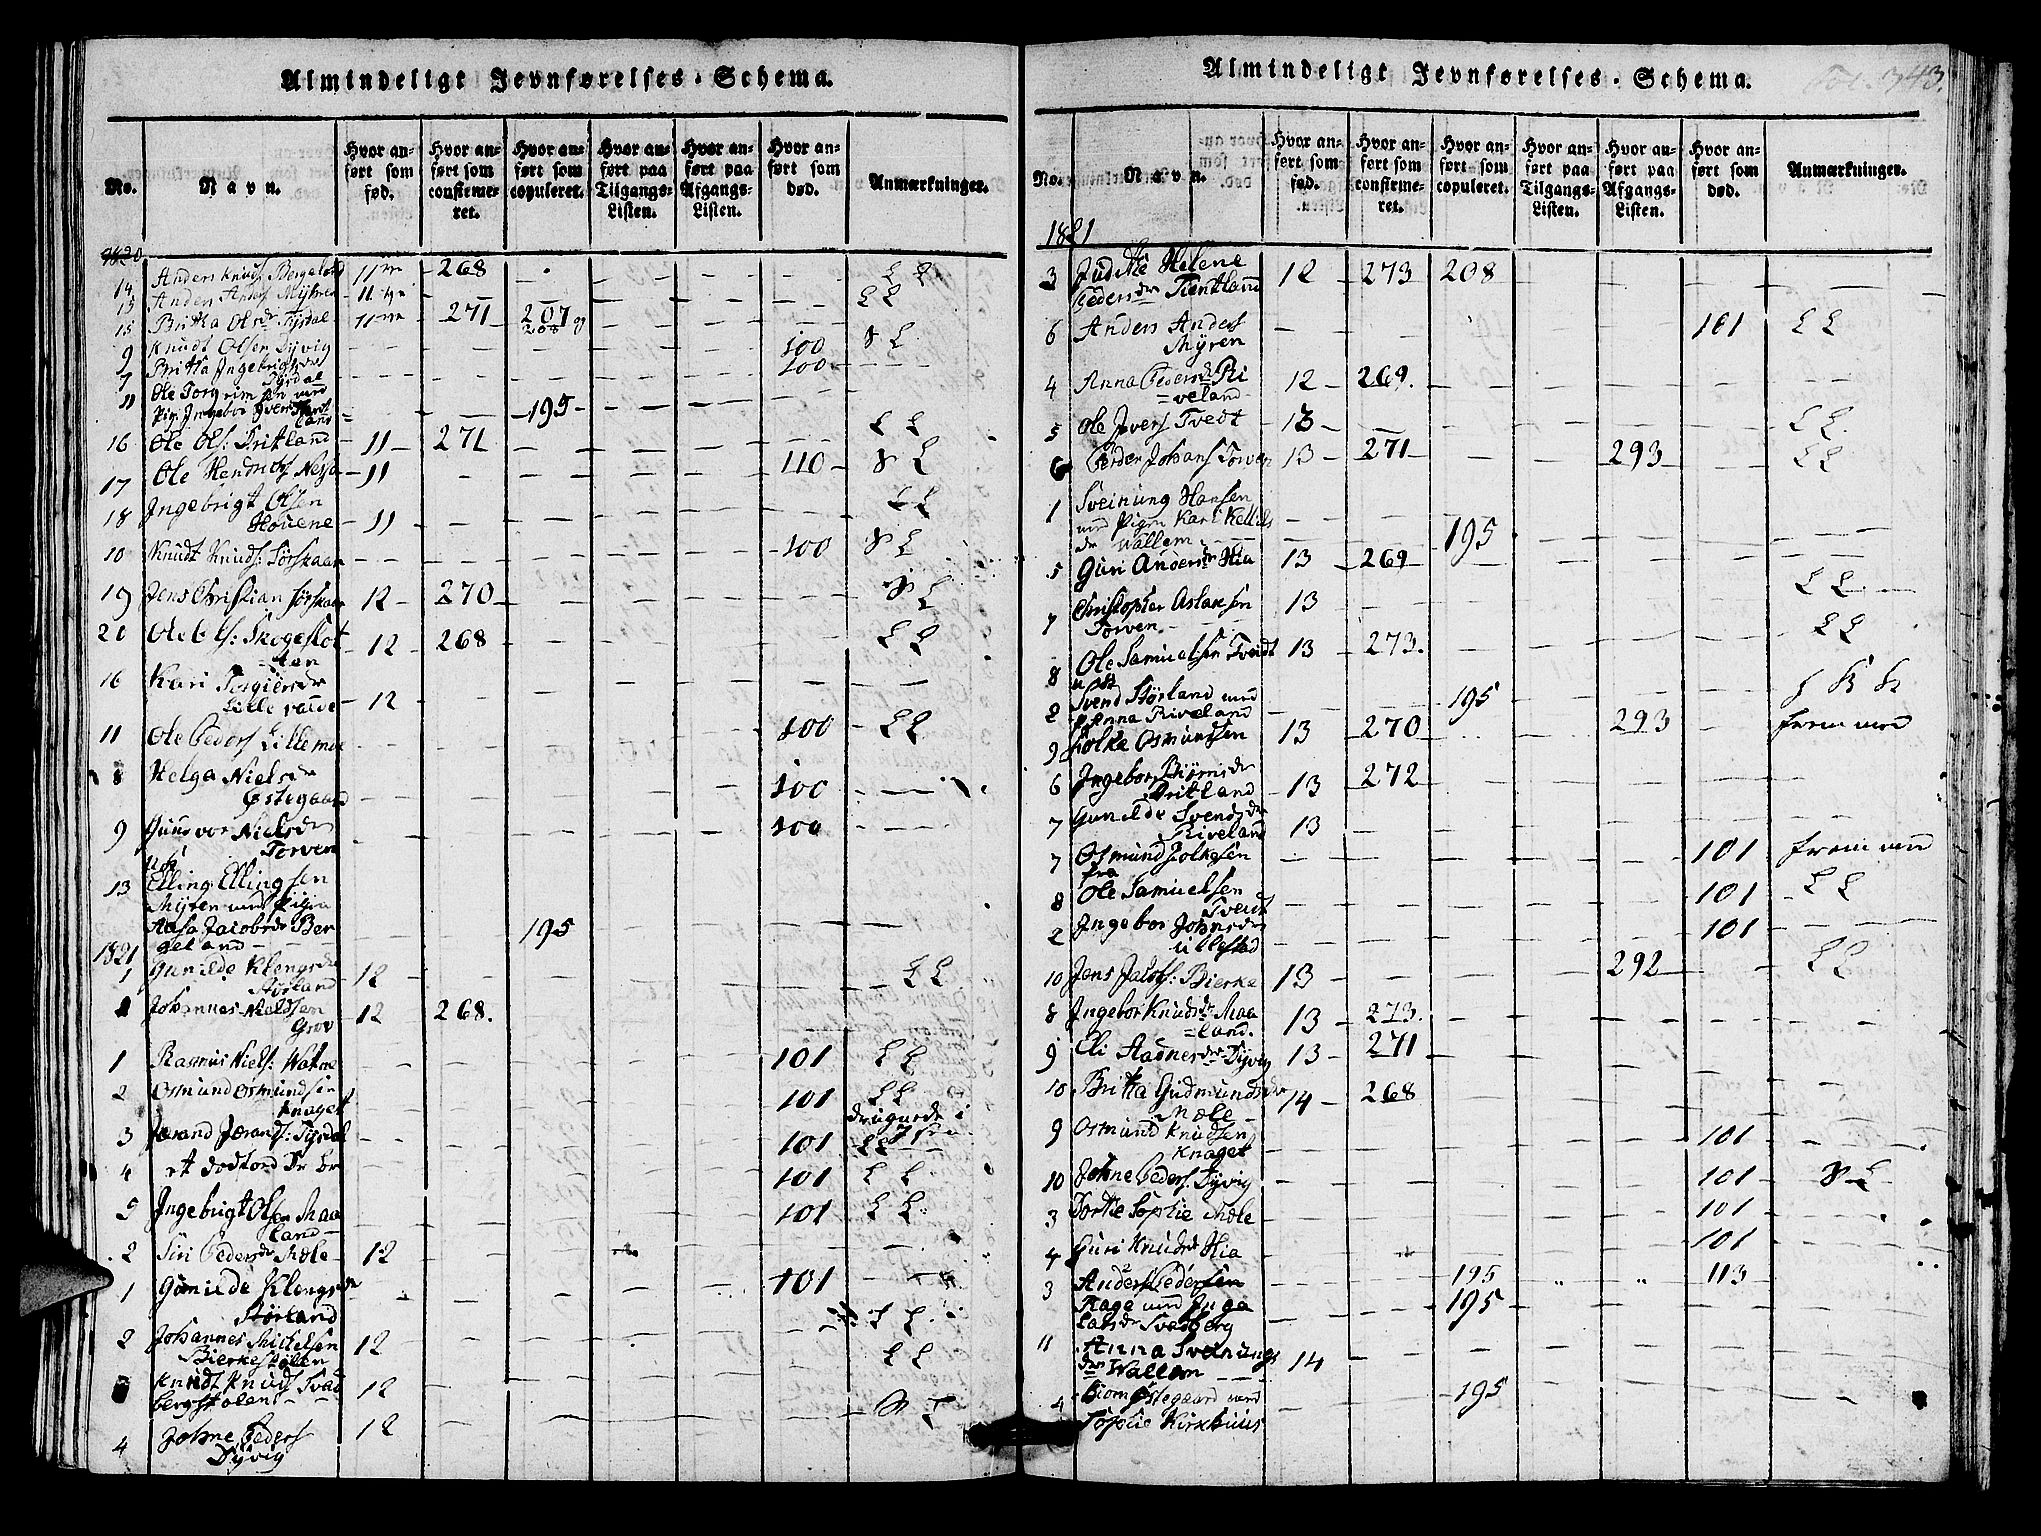 Almindeligt Jevnførelses-Schema.
No. Navn. Hvor anført som fød. Hvor anført som confirmeret. Hvor anført som copuleret. Hvor anført paa Tilgangs-Listen. Hvor anført paa Afgangs-Listen. Hvor anført som død. Anmærkninger.
1820
14 Anders Knuds Bergeland 11 268 L L
15 Anders Anders Myhren 11 L L
15 Britha Olsdr Tysdal 11 271 207
208
9 Knudt Olsen Dyvig 100 S L
7 Britha Ingebrigtsdr 100
Tysdal
11 Ole Torgrimsen und
Pig. Ingebor Iversdr 195
land
16 Ole Ols: Tritland 11 271 L L
17 Ole Hendrichs Nessa 11 110 S L
18 Ingebrigt Olsen
Houene 11 L L
10 Knudt Knuds: Sørskaar 100 S L
19 Jens Christian Sørskaar 12 270 S L
20 Ole Ols: Skogeslot
ten 12 268 L L
16 Kari Torgiersdr
Lille 12
11 Ole Peders Lillemoe 100 L L
8 Helga Nielsdr
Østegaard 100
9 Gunvor Nielsdr
Torven 100
13 Elling Ellingsen
Myren und Pigen
Aasa Jacobsdr Ber
geland 195
1821
1 Gunilde Klengsdr
Størland 12 L L
1 Johannes Nielsen
Grov 12 268.
1 Rasmus Niels: Watne 101 L L
2 Osmund Osmundsen
Knaget 101 L L
3 Jørand Jørands: Tysdal 101 L L
4 et dødfød Dr Br 101 L L
5 Ingebrigt Olsen Maa
land 101 L L
2 Siri Pedersdr Mæle 12
1 Gunilde Klengsdr
Størland 101
2 Johannes Mickelsen
Bierkestølen 12 L L
Knudt Knuds Svad
bergstølen 12 L L
4 Johne Peders
Dyvig 12 S L
Almindeligt Jevnførelses-Schema.
Fol. 343.
No. Navn. Hvor anført som fød. Hvor anført som confirmeret. Hvor anført som copuleret. Hvor anført paa Tilgangs-Listen. Hvor anført paa Afgangs-Listen. Hvor anført som død. Anmærkninger.
1821
3 Judithe Helene
Pedersdr Tientland 12 273 208
6 Anders Anders
Myren 101 L L
4 Anna Pedersdr Ri
veland 12 269.
5 Ole Ivers Tvedt 13 L L
6 Peder Johans Torven 13 271 293 L L
1 Sveinung Hansen
und Pigen Kari Ketils
dr Wallem 195
5 Guri Andersdr Hia 13 269
7 Christopher Aslaksen
Torven 13 L L
8 Ole Samuelsen Tveidt 13 273. L L
2 Svend Størland und
Anna Riveland 195
9 Folke Osmundsen 13 270 293 frem und
6 Ingebor Biørnsdr
Tritland 13 272
7 Gunilde Svendsdr
Riveland 13
7 Osmund Folkesen 101 frem und
fra
8 Ole Samuelsen
Tveidt 101 L L
2 Ingebor Johnsdr
Ullestad 101
10 Jens Jacobs: Bierke 13 292 L L
8 Ingebor Knudsdr Maa
land. 13 273.
9 Eli Aadnesdr Dyvig 13 271
10 Britha Gudmundsdr
Mæle 14 268
9 Osmund Knudsen
Knaget 101
10 Johne Peders. Dyvig 101 S L
3 Dorthe Sophie Mæle 101
4 Guri Knudsdr Hia 101
3 Anders Pedersen 195 " " 113
Rage und Inga
Larsdr Svadberg 195
11 Anna Sveinungs
dr Wallem 14
4 Biorn Østegaard und
Sophie Kirkhuus 195